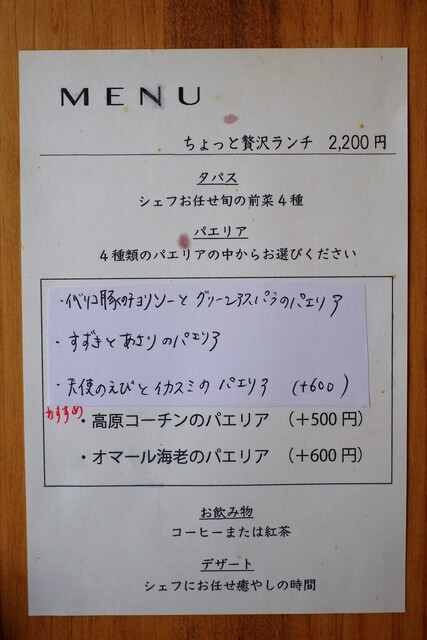 MENU
ちょっと贅沢ランチ 2,200円
タパス
シェフお任せ旬の前菜4種
パエリア
4種類のパエリアの中からお選びください
・イベリコ豚のチョリソーと グリーンアスパラのパエリア
・すずきとあさりのパエリア
・天使のえびとイカスミの パエリア (+600)
おすすめ
・高原コーチンのパエリア (+500円)
・オマール海老のパエリア (+600円)
お飲み物
コーヒーまたは紅茶
デザート
シェフにお任せ癒やしの時間